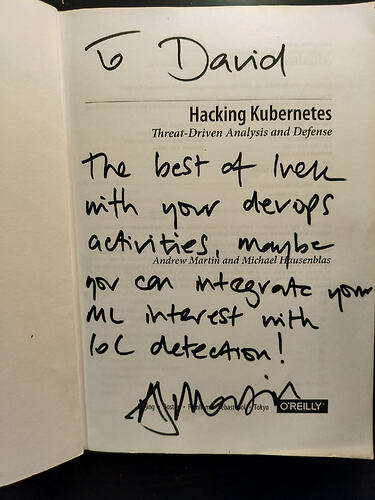 To David
Hacking Kubernetes
Threat-Driven Analysis and Defense
The best of luck
with your devops
activities, maybe
Andrew Martin and Michael Hausenblas
you can integrate your
ML interest with
IoC detection!
AJMartin
Tokyo
O'REILLY